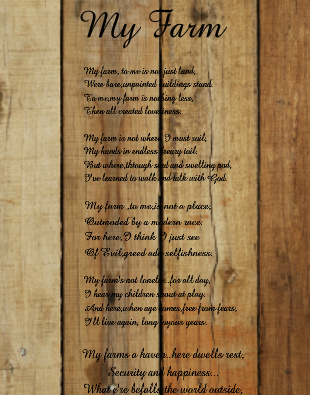 My Farm
My farm, to me is not just land,
Were bare,unpainted buildings stand.
To me,my farm is nothing less,
Then all created loveliness.
My farm is not where I must soil,
My hands in endless dreary toil.
But where,through seed and swelling pod,
I've learned to walk and talk with God.
My farm ,to me,is not a place,
Outmoded by a modern race.
Far here,I think I just see
Of Evil,greed and selfishness.
My farm's not lonely..for all day,
I hear my children shout at play.
And here,when age comes,free from fears,
I'll live again, long joyous years.
My farms a haven..here dwells rest,
Security and happiness...
What e're befalls the world outside,